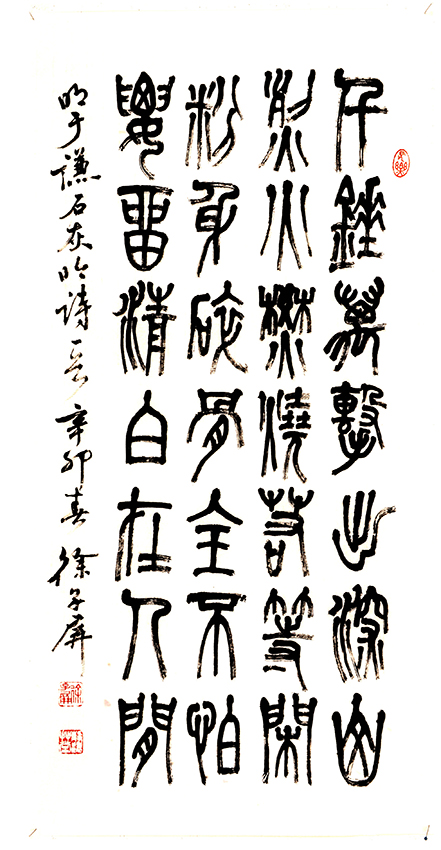 千錘萬擊出深山
烈火焚燒若等閑
粉身碎骨全不怕
要留清白在人間
明于謙石灰吟詩一首 辛卯春 徐子屏